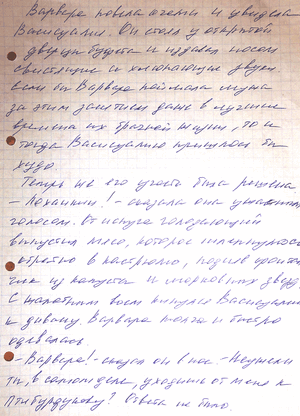 Варвара повела очами и увидела
Васисуалия. Он стоял у открытой
дверцы буфета и издавал носом
свистящие и хлюпающие звуки
если бы Варвара поймала мужа
за этим занятием даже в лучшие
времена их брачной жизни, то и
тогда Васисуалию пришлось бы
худо.
Теперь же его участь была решена
- Лоханкин! - сказала она ужасным
голосом. От испуга голодающий
выпустил мясо, которое шлепнулось
обратно в кастрюлю, подняв фонтан-
чик из капусты и морковных звезд.
С жалобным воем кинулся Васисуалий
к дивану. Варвара молча и быстро
одевалась.
- Варвара! - сказал он в нос. - Неужели
ты, в самом деле, уходишь от меня к
Птибурдукову? Ответа не было.